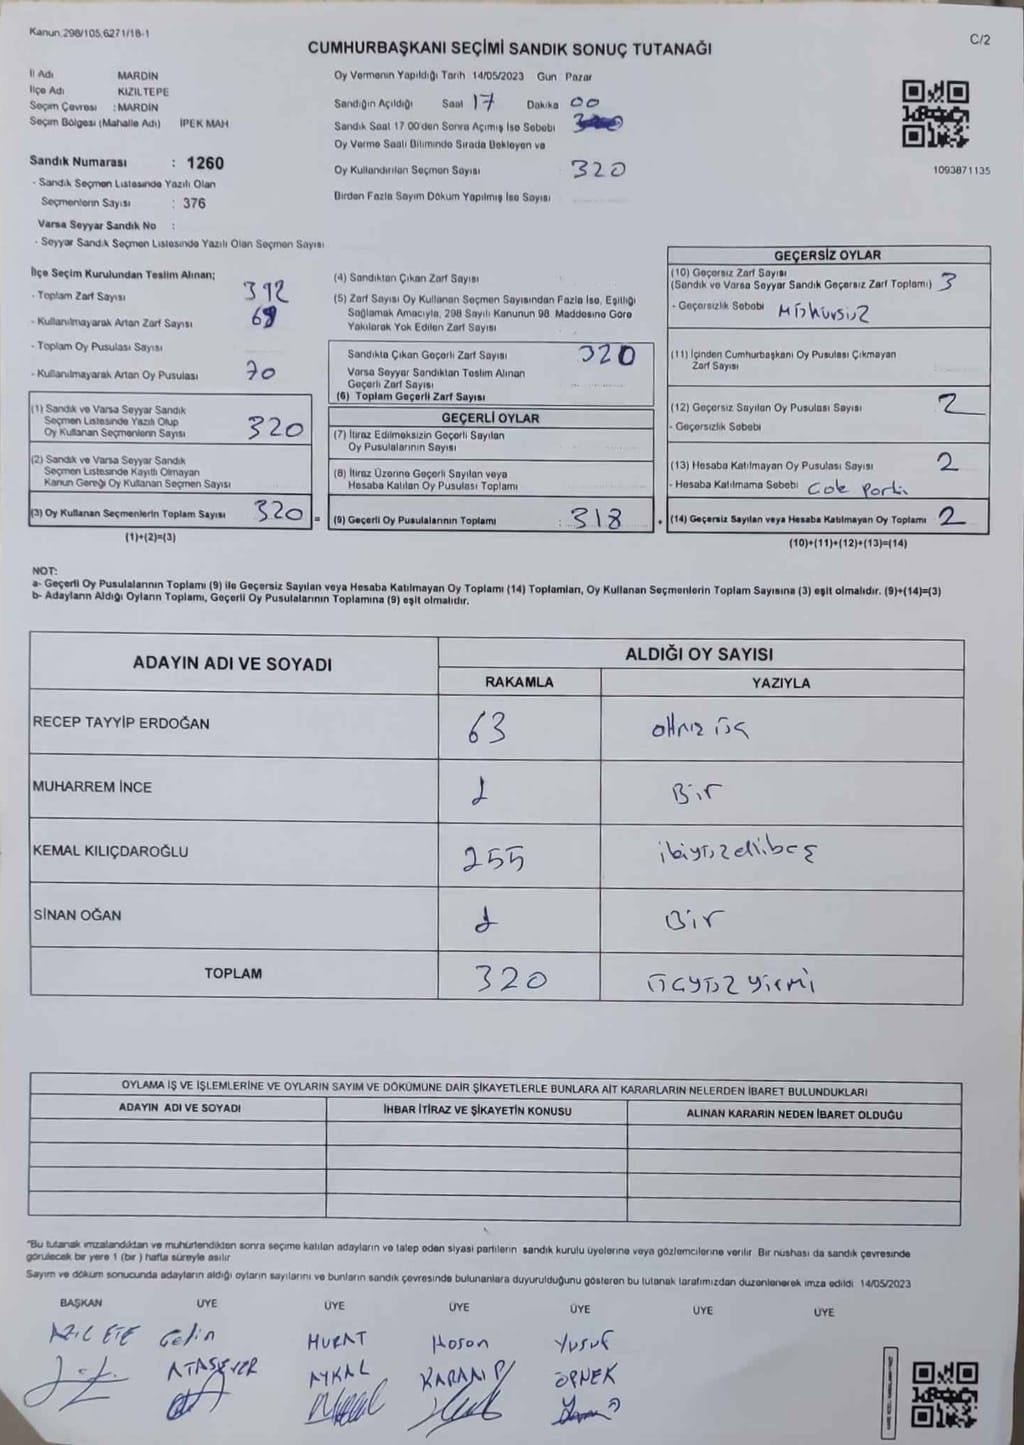 Kanun,298/105,6271/18-1
C/2
CUMHURBAŞKANI SEÇİMİ SANDIK SONUÇ TUTANAĞI
İl Adı MARDİN
İlçe Adı KIZILTEPE
Seçim Çevresi : MARDİN
Seçim Bölgesi (Mahalle Adı) İPEK MAH
Sandık Numarası : 1260
- Sandık Seçmen Listesinde Yazılı Olan
Seçmenlerin Sayısı : 376
Varsa Seyyar Sandık No :
- Seyyar Sandık Seçmen Listesinde Yazılı Olan Seçmen Sayısı
Oy Vermenin Yapıldığı Tarih 14/05/2023 Gün Pazar
Sandığın Açıldığı Saat 17 Dakika 00
Sandık Saat 17 00'den Sonra Açımış İse Sebebi
Oy Verme Saati Bitiminde Sırada Bekleyen ve
Oy Kullandırılan Seçmen Sayısı 320
Birden Fazla Sayım Döküm Yapılmış İse Sayısı
1093871135
İlçe Seçim Kurulundan Teslim Alınan;
- Toplam Zarf Sayısı 392
- Kullanılmayarak Artan Zarf Sayısı
- Toplam Oy Pusulası Sayısı
- Kullanılmayarak Artan Oy Pusulası 70
(1) Sandık ve Varsa Seyyar Sandık
Seçmen Listesinde Yazılı Olup
Oy Kullanan Seçmenlerin Sayısı 320
(2) Sandık ve Varsa Seyyar Sandık
Seçmen Listesinde Kayıtlı Olmayan
Kanun Gereği Oy Kullanan Seçmen Sayısı
(3) Oy Kullanan Seçmenlerin Toplam Sayısı 320 =
(1)+(2)=(3)
(4) Sandıktan Çıkan Zarf Sayısı
(5) Zarf Sayısı Oy Kullanan Seçmen Sayısından Fazla İse, Eşitliği
Sağlamak Amacıyla, 298 Sayılı Kanunun 98 Maddesine Göre
Yakılarak Yok Edilen Zarf Sayısı
Sandıkta Çıkan Geçerli Zarf Sayısı 320
Varsa Seyyar Sandıktan Teslim Alınan
Geçerli Zarf Sayısı
(6) Toplam Geçerli Zarf Sayısı
GEÇERLİ OYLAR
(7) İtiraz Edilmeksizin Geçerli Sayılan
Oy Pusulalarının Sayısı
(8) İtiraz Üzerine Geçerli Sayılan veya
Hesaba Katılan Oy Pusulası Toplamı
(9) Geçerli Oy Pusulalarının Toplamı : 318 +
GEÇERSİZ OYLAR
(10) Geçersiz Zarf Sayısı
(Sandık ve Varsa Seyyar Sandık Geçersiz Zarf Toplamı) 3
- Geçersizlik Sebebi Mühürsüz
(11) İçinden Cumhurbaşkanı Oy Pusulası Çıkmayan
Zarf Sayısı
(12) Geçersiz Sayılan Oy Pusulası Sayısı 2
- Geçersizlik Sebebi
(13) Hesaba Katılmayan Oy Pusulası Sayısı 2
- Hesaba Katılmama Sebebi Çok Parti
(14) Geçersiz Sayılan veya Hesaba Katılmayan Oy Toplamı 2
(10)+(11)+(12)+(13)=(14)
NOT:
a- Geçerli Oy Pusulalarının Toplamı (9) ile Geçersiz Sayılan veya Hesaba Katılmayan Oy Toplamı (14) Toplamları, Oy Kullanan Seçmenlerin Toplam Sayısına (3) eşit olmalıdır. (9)+(14)=(3)
b- Adayların Aldığı Oyların Toplamı, Geçerli Oy Pusulalarının Toplamına (9) eşit olmalıdır.
ADAYIN ADI VE SOYADI ALDIĞI OY SAYISI
RAKAMLA YAZIYLA
RECEP TAYYİP ERDOĞAN 63 üç
MUHARREM İNCE 1 Bir
KEMAL KILIÇDAROĞLU 255 ikiyüzellibeş
SİNAN OĞAN 1 Bir
TOPLAM 320 üçyüzyirmi
OYLAMA İŞ VE İŞLEMLERİNE VE OYLARIN SAYIM VE DÖKÜMÜNE DAİR ŞİKAYETLERLE BUNLARA AİT KARARLARIN NELERDEN İBARET BULUNDUKLARI
ADAYIN ADI VE SOYADI İHBAR İTİRAZ VE ŞİKAYETİN KONUSU ALINAN KARARIN NEDEN İBARET OLDUĞU
"Bu tutanak imzalandıktan ve mühürlendikten sonra seçime katılan adayların ve talep eden siyasi partilerin sandık kurulu üyelerine veya gözlemcilerine verilir. Bir nüshası da sandık çevresinde
görülecek bir yere 1 (bir) hafta süreyle asılır
Sayım ve döküm sonucunda adayların aldığı oyların sayılarını ve bunların sandık çevresinde bulunanlara duyurulduğunu gösteren bu tutanak tarafımızdan düzenlenerek imza edildi. 14/05/2023
BAŞKAN ÜYE ÜYE ÜYE ÜYE ÜYE ÜYE
AZİL ETE Çetin MURAT Hasan Yusuf
ATASEVER AYKAL ÖRNEK